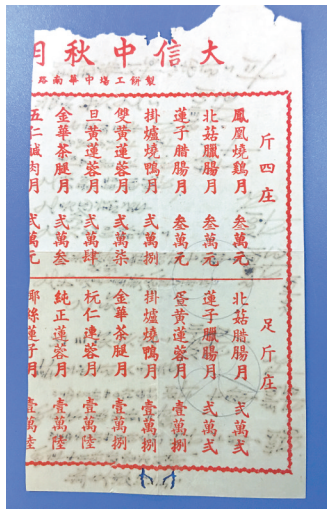 大信中秋月
製餅工塲中華南路
斤四庄
鳳凰燒鷄月 叁萬元
北菇臘腸月 叁萬元
蓮子腊腸月 叁萬元
掛爐燒鴨月 弍萬捌
雙黄蓮蓉月 弍萬柒
旦黄蓮蓉月 弍萬肆
金華茶腿月 弍萬叁
五仁鹹肉月 弍萬元
足斤庄
北菇腊腸月 弍萬弍
蓮子臘腸月 弍萬弍
蛋黄蓮蓉月 壹萬捌
掛爐燒鴨月 壹萬捌
金華茶腿月 壹萬捌
杬仁連蓉月 壹萬陸
純正蓮蓉月 壹萬陸
椰絲蓮子月 壹萬陸